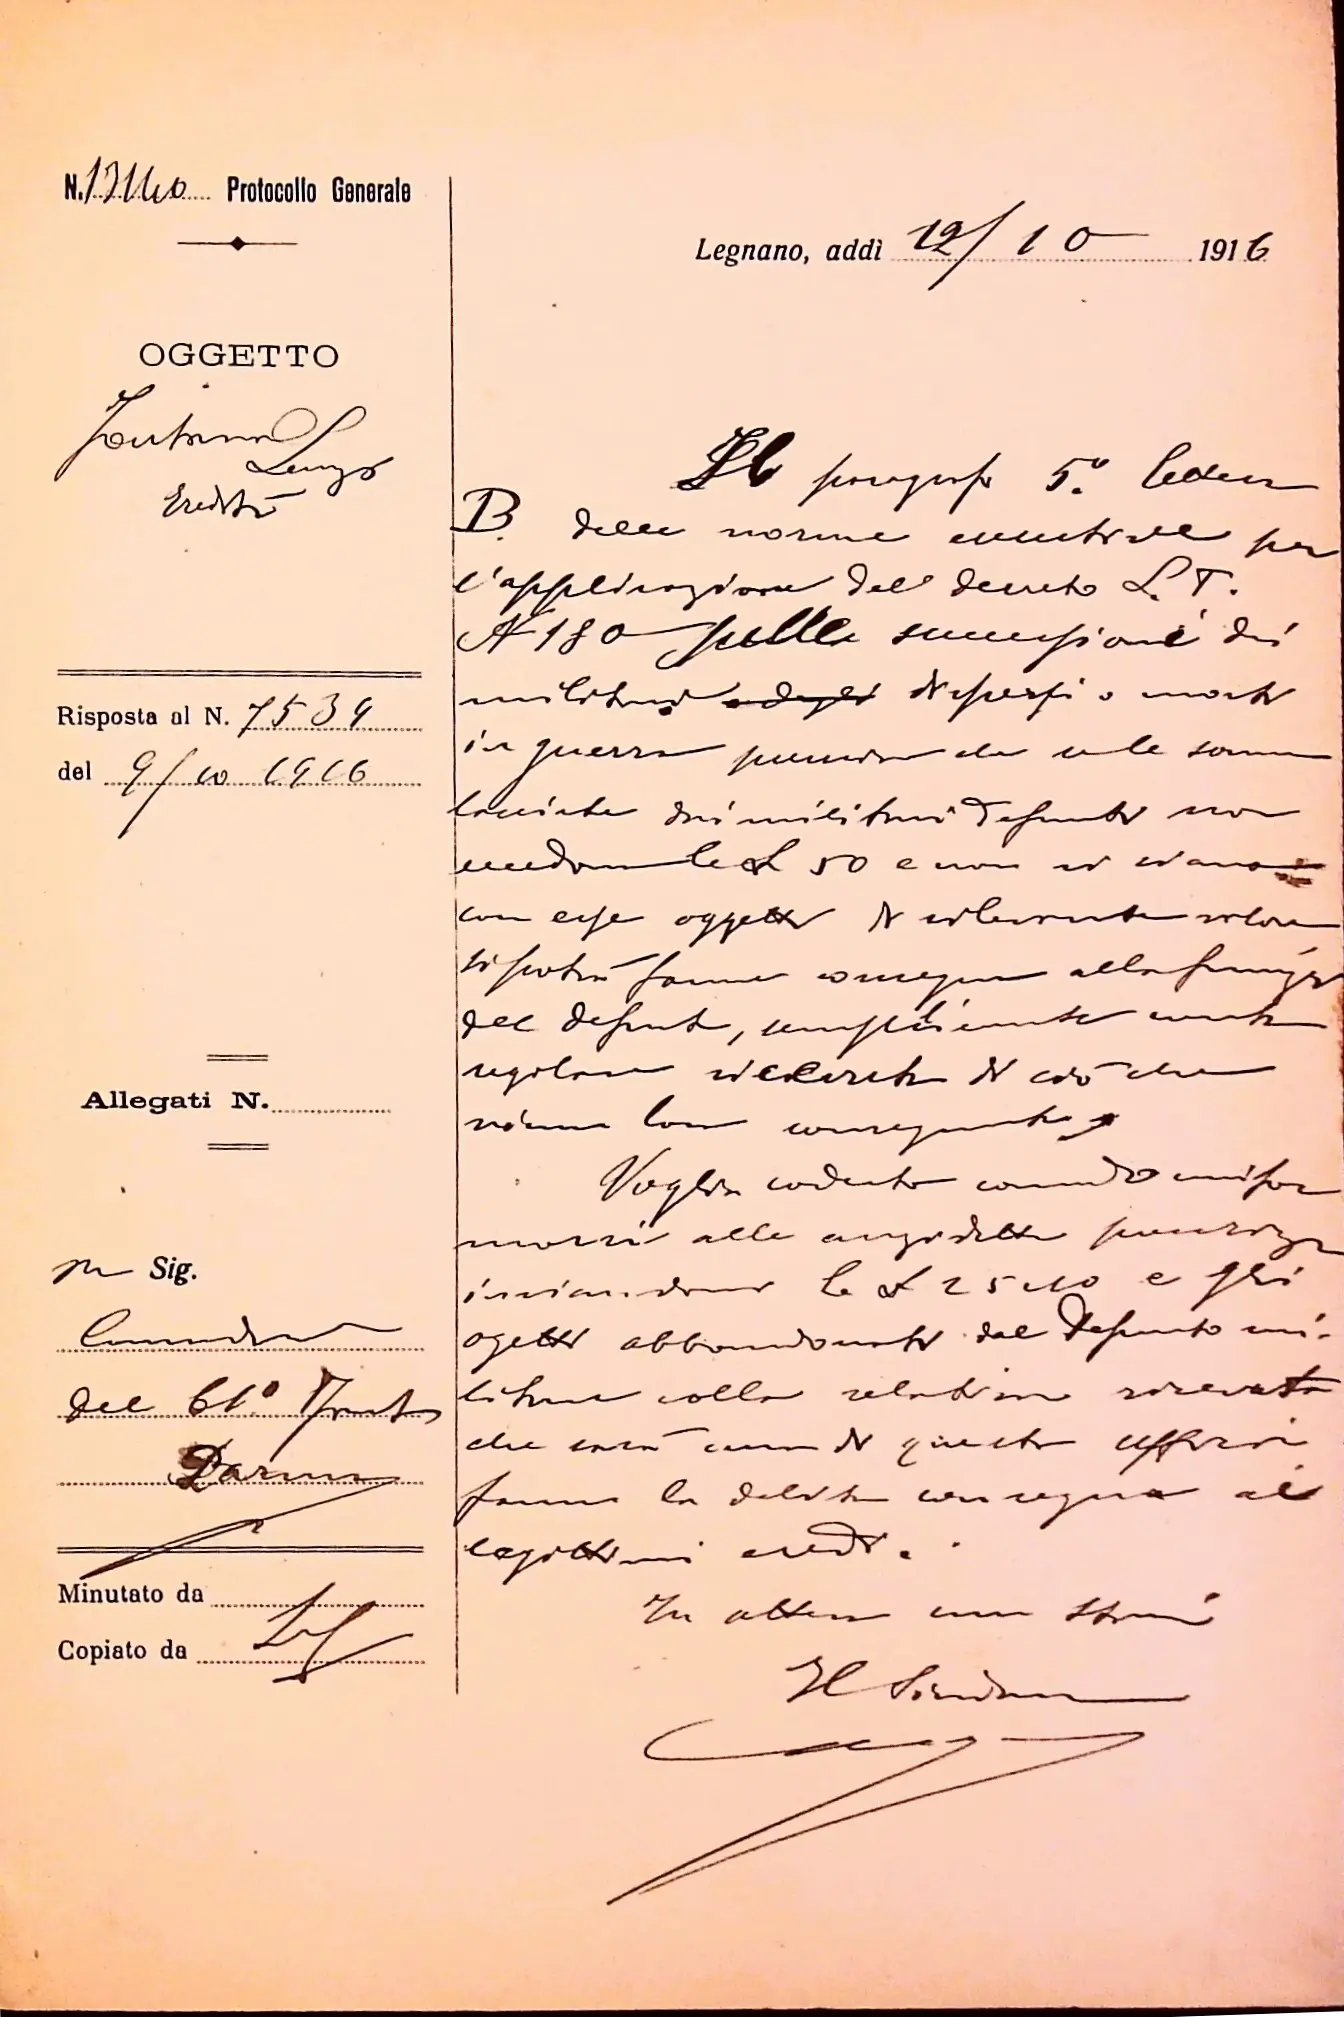 N. Protocollo Generale
Legnano, addì 12/10 1916
OGGETTO
Fontana
Eredità
Risposta al N. 7539
del 9/10 1916
Allegati N.
Sig.
Comando
del 61° Fant.
Parma
Minutato da
Copiato da
Il paragrafo 5.° lettera
B. delle norme esecutive per
l'applicazione del decreto L.T.
N 180 sulle successioni dei
militari e degli dispersi o morti
in guerra prescrive che se le somme
lasciate dai militari defunti non
eccedono le £ 50 e non vi siano
con esse oggetti di rilevante valore
si potrà farne consegna alla famiglia
del defunto, semplicemente contro
regolare ricevuta di ciò che
viene loro consegnato.
Voglia codesto comando unifor
marsi alle anzidette prescrizioni
inviandomi le £ 25.10 e gli
ogetti abbandonati dal defunto mi-
litare colla relativa ricevuta
che sarà cura di questo ufficio
farne la debita consegna ai
legittimi eredi.
In attesa con stima
Il Sindaco